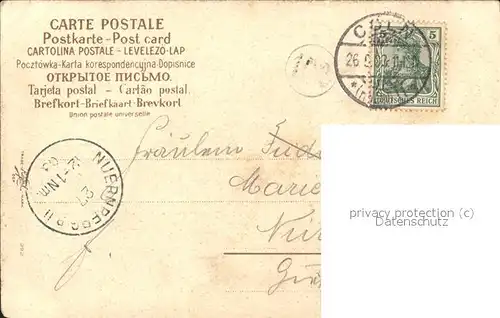 CARTE POSTALE
Postkarte - Post card
CARTOLINA POSTALE - LEVELEZO-LAP
Pocztówka-Karta korespondencyjna-Dopisnice
ОТКРЫТОЕ ПИСЬМО.
Tarjeta postal - Cartão postal.
Brefkort-Briefkaart-Brevkort
Union postale universelle
CÖLN
5
DEUTSCHES REICH
Fräulein
Marie
NUERNBERG
27
12-1 Nm.
privacy protection (c)
Datenschutz